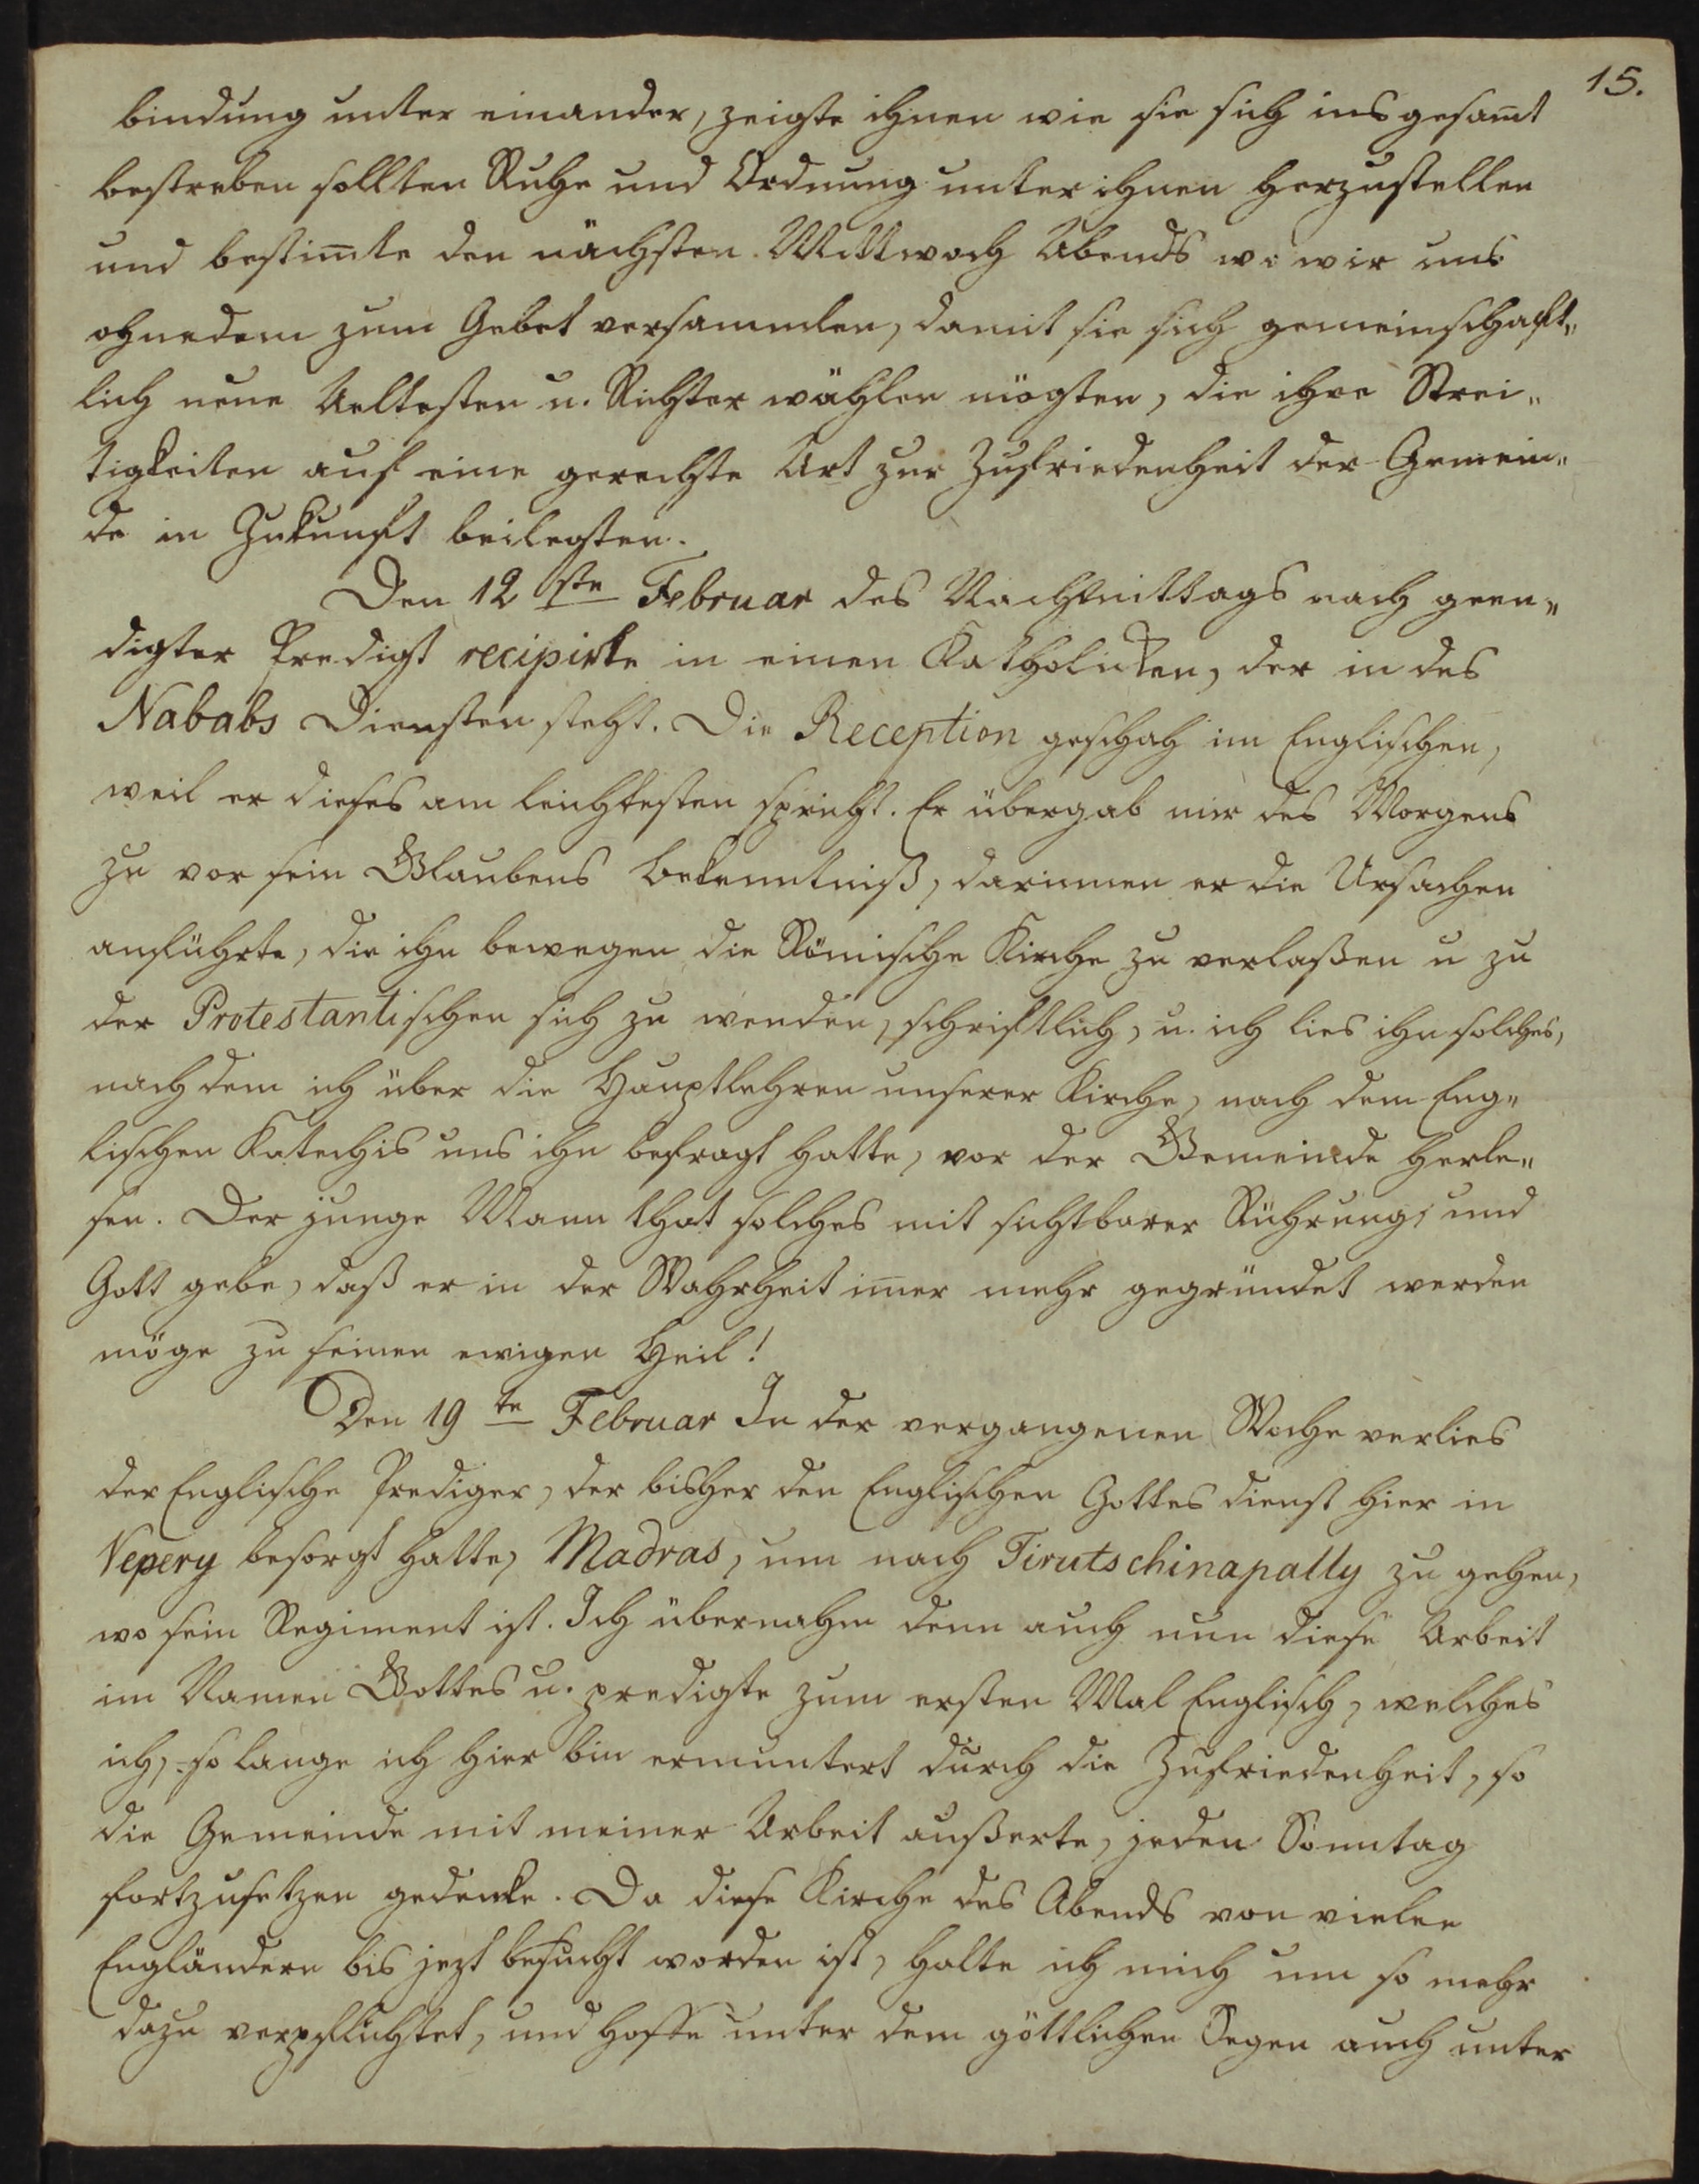 15.
bindung unter einander, zeigte ihnen wie sie sich ins gesam̄t
bestreben sollten Ruhe und Ordnung unter ihnen herzustellen
und bestim̄te den nächsten Mittwoch Abends wo wir uns
ohnedem zum Gebet versammlen, damit sie sich gemeinschaft„
lich neue Aeltesten u. Richter wählen mögten, die ihre Strei„
tigkeiten auf eine gerechte Art zur Zufriedenheit der Gemein„
de in Zukunft beilegten.
Den 12 ten Februar des Nachmittags nach geen„
digter Predigt recipirte in einen Katholicken, der in des
Nababs Diensten steht. Die Reception geschah im Englischen,
weil er dieses am leichtesten spricht. Er übergab mir des Morgens
zu vor sein Glaubens bekenntniß, darinnen er die Ursachen
anführte, die ihn bewegen die Römische Kirche zu verlaßen u zu
der Protestantischen sich zu wenden, schriftlich, u. ich lies ihn solches,
nach dem ich über die Hauptlehren unserer Kirche, nach dem Eng„
lischen Katechis mus ihn befragt hatte, vor der Gemeinde herle„
sen. Der junge Mann that solches mit sichtbarer Rührung; und
Gott gebe, daß er in der Wahrheit im̄er mehr gegründet werden
möge zu seinen ewigen Heil!
Den 19 te Februar In der vergangenen Woche verlies
der Englische Prediger, der bisher den Englischen Gottes dienst hier in
Vepery besorgt hatte, Madras, um nach Tirutschinapally zu gehen,
wo sein Regiment ist. Ich übernahm denn auch nun diese Arbeit
im Namen Gottes u. predigte zum ersten Mal Englisch, welches
ich, so lange ich hier bin ermuntert durch die Zufriedenheit, so
die Gemeinde mit meiner Arbeit außerte, jeden Sonntag
fortzusetzen gedenke. Da diese Kirche des Abends von vielen
Engländern bis jezt besucht worden ist, halte ich mich um so mehr
dazu verpflichtet, und hoffe unter dem göttlichen Segen auch unter